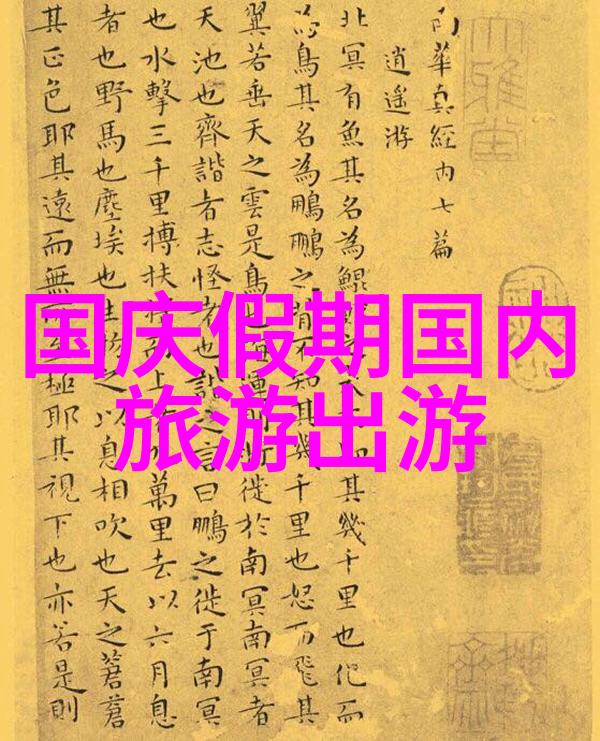 南華真經内七篇
逍遥游
北冥有魚其名為鯤其幾千里也化而
為鳥其名為鵬鵬之背不知其幾千里也怒而飛其
翼若垂天之雲是鳥也海運則將徙於南冥南冥者
天池也齊諧者志怪者也諧之言曰鵬之徙于南冥
也水擊三千里搏扶上萬里去以六月息
者也野馬也塵埃也生物之以息相吹也天之蒼蒼
其正色耶其遠而無極耶其視下也亦若是則
国庆假期国内
旅游出游